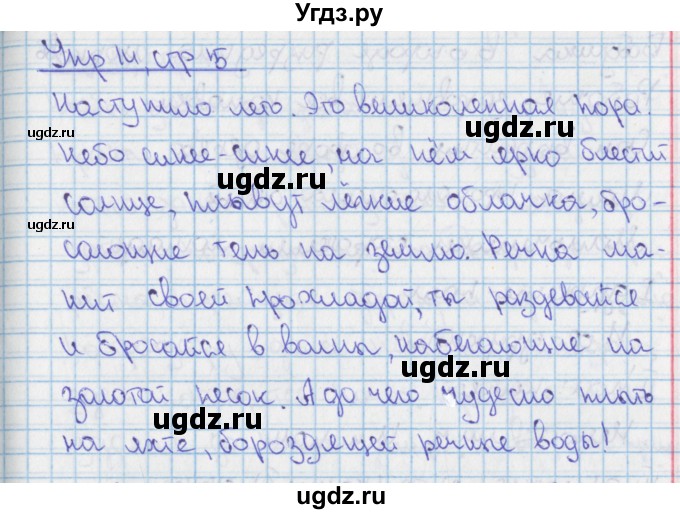 Угдз.ру
Упр 111, стр 15
Наступило лето. Это великолепная пора.
Небо синее-синее, на нём ярко блестит
солнце, плывут лёгкие облачка, бро-
сающие тень на землю. Речка ма-
нит своей прохладой, ты раздевайся
и бросайся в волны, набегающие на
золотой песок. А до чего чудесно плыть
на яхте, бороздящей речные воды!
ugdz.ru
ugdz.ru
ugdz.ru
ugdz.ru
ugdz.ru
ugdz.ru
ugdz.ru
ugdz.ru
ugdz.ru
ugdz.ru